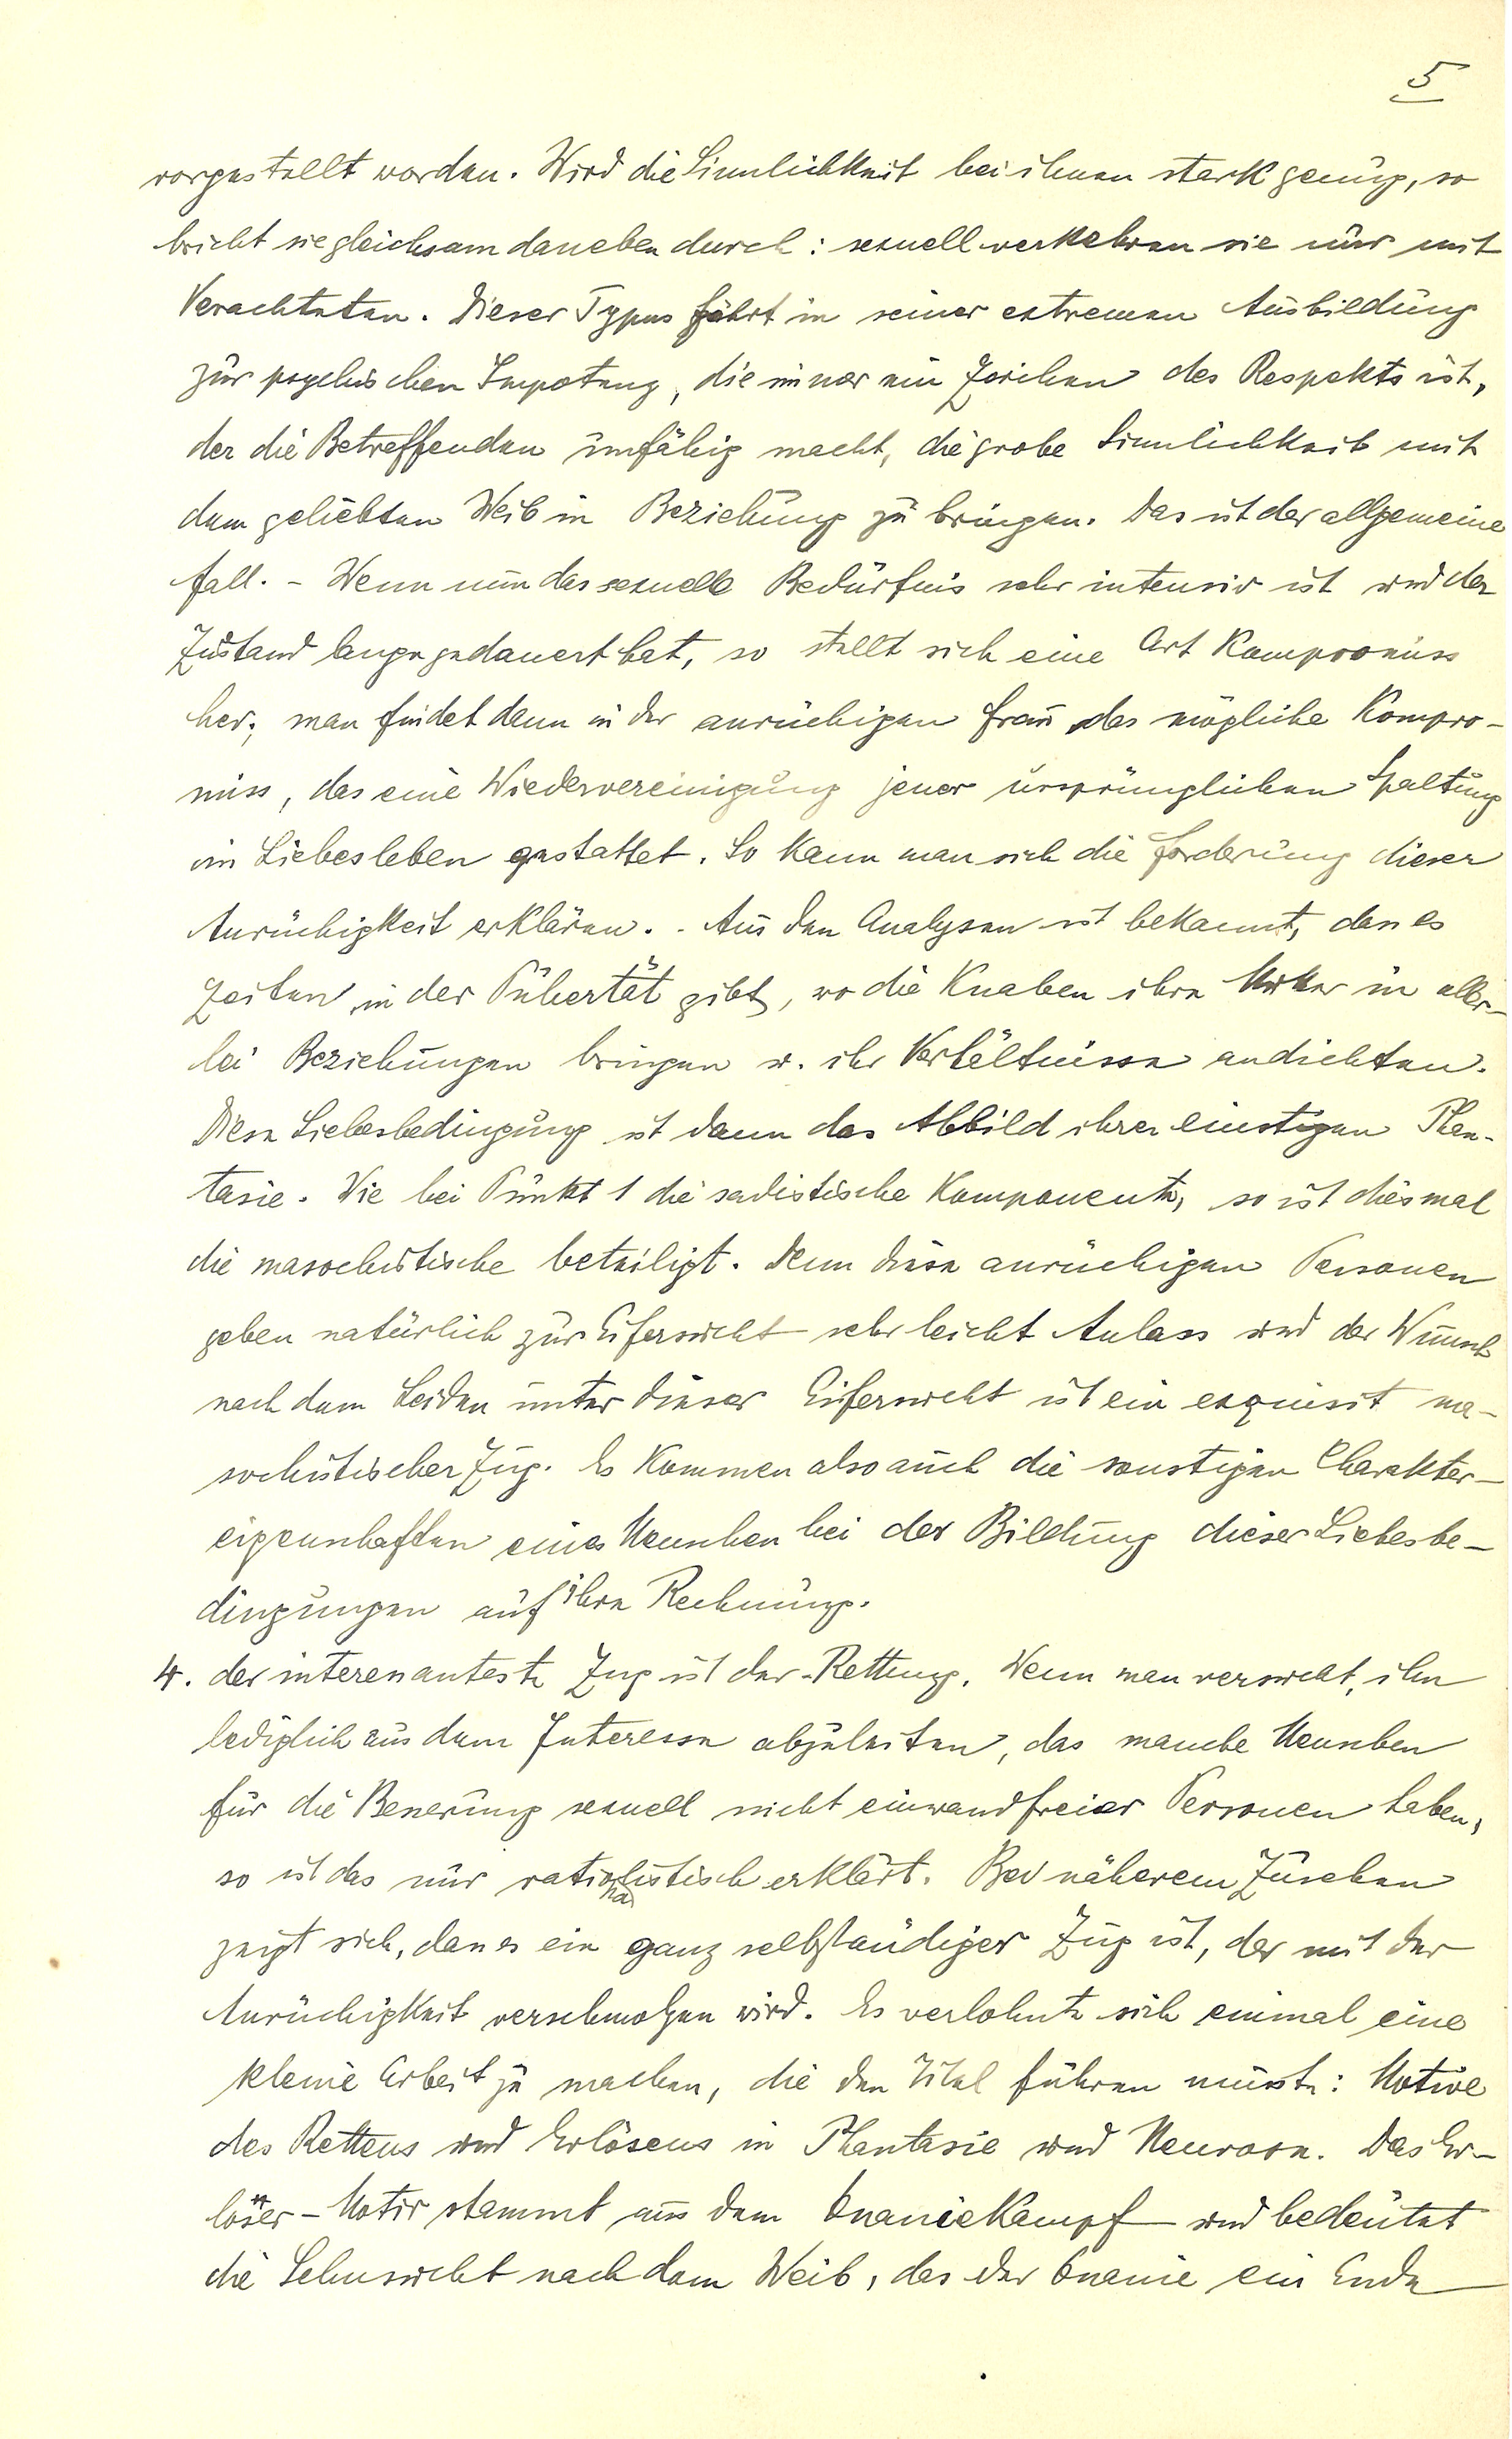 5
vorgestellt worden. Wird die Sinnlichkeit bei ihnen stark genug, so
bricht sie gleichsam daneben durch: sexuell verkehren sie nur mit
Verachteten. Dieser Typus führt in seiner extremen Ausbildung
zur psychischen Impotenz, die immer ein Zeichen des Respekts ist,
der die Betreffenden unfähig macht, die grobe Sinnlichkeit mit
dem geliebten Weib in Beziehung zu bringen. Das ist der allgemeine
Fall. - Wenn nun das sexuelle Bedürfnis sehr intensiv ist und der
Zustand lange gedauert hat, so stellt sich eine Art Kompromiss
her; man findet dann in der anrüchigen Frau das mögliche Kompro-
miss, das eine Wiedervereinigung jener ursprünglichen Spaltung
im Liebesleben gestattet. So kann man sich die Forderung dieser
Anrüchigkeit erklären. - Aus den Analysen ist bekannt, dass es
Zeiten in der Pubertät gibt, wo die Knaben ihre Mutter in aller-
lei Beziehungen bringen u. ihr Verhältnisse andichten.
Diese Liebesbedingung ist dann das Abbild ihrer einstigen Phan-
tasie. Wie bei Punkt 1 die sadistische Komponente, so ist diesmal
die masochistische beteiligt. Denn diese anrüchigen Personen
geben natürlich zur Eifersucht sehr leicht Anlass und der Wunsch
nach dem Leiden unter dieser Eifersucht ist ein exquisit ma-
sochistischer Zug. Es kommen also auch die sonstigen Charakter-
eigenschaften eines Menschen bei der Bildung dieser Liebesbe-
dingungen auf ihre Rechnung.
4. der interessanteste Zug ist der Rettung. Wenn man versucht, ihn
lediglich aus dem Interesse abzuleiten, das manche Menschen
für die Besserung sexuell nicht einwandfreier Personen haben,
so ist das nur rationalistisch erklärt. Bei näherem Zusehen
zeigt sich, dass es ein ganz selbständiger Zug ist, der mit der
Anrüchigkeit verschmolzen wird. Es verlohnte sich einmal eine
kleine Arbeit zu machen, die den Titel führen müsste: Motive
des Rettens und Erlösens in Phantasie und Neurose. Das Er-
löser-Motiv stammt aus dem Onaniekampf und bedeutet
die Sehnsucht nach dem Weib, das der Onanie ein Ende